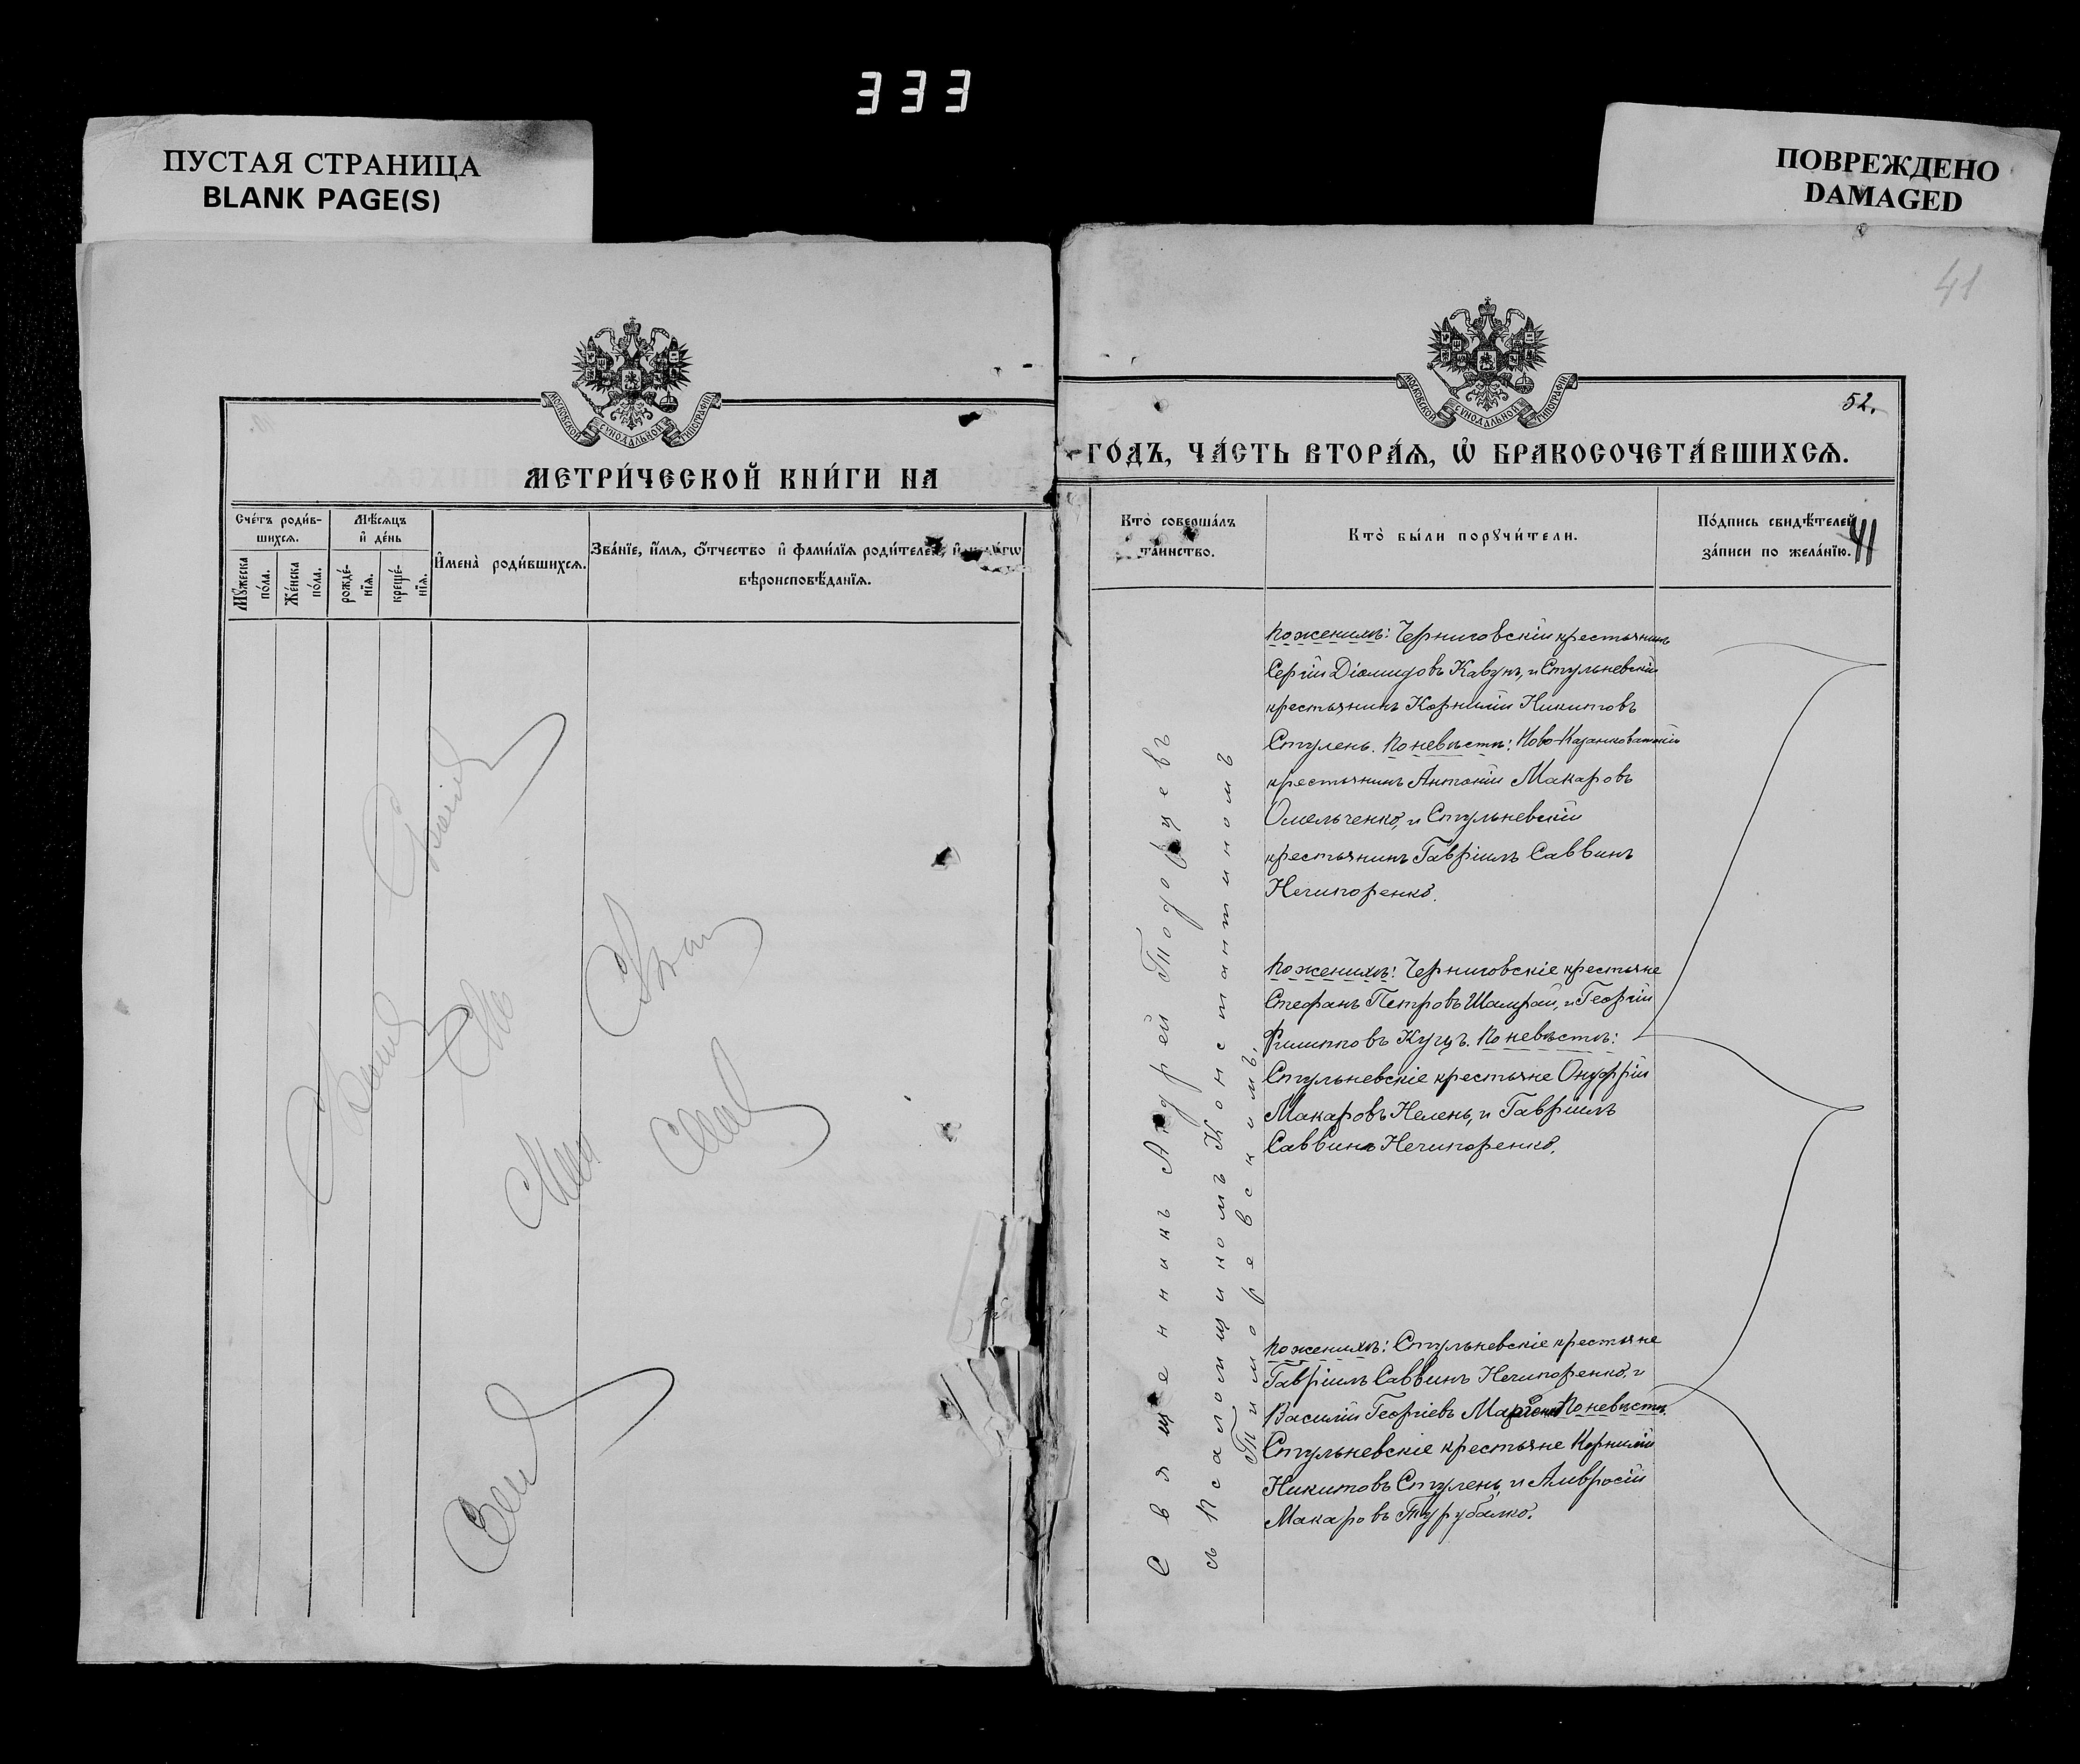 333
ПУСТАЯ СТРАНИЦА
BLANK PAGE(S)
ПОВРЕЖДЕНО
DAMAGED
МОСКОВСКОЙ СѴНОДАЛЬНОЙ ТИПОГРАФІИ
МЕТРИ́ЧЕСКОЙ КНИ́ГИ НА
Сче́тъ роди́в-
шихсѧ.
Мѣ́сѧцъ
и҆ де́нь
Мꙋ́жеска
по́ла.
Же́нска
по́ла.
рожде́-
нїѧ.
креще́-
нїѧ.
И҆мена̀ роди́вшихсѧ.
Зва́нїе, и҆́мѧ, ѻ҆́тчество и҆ фами́лїѧ роди́телей, и҆
вѣроисповѣ́данїѧ.
41
МОСКОВСКОЙ СѴНОДАЛЬНОЙ ТИПОГРАФІИ
52.
ГО́ДЪ, ЧА́СТЬ ВТОРА́Ѧ, Ѽ БРАКОСОЧЕТА́ВШИХСѦ.
Кто̀ соверша́лъ
та́инство.
Кто̀ бы́ли порꙋчи́тели.
По́дпись свидѣ́телей
за́писи по жела́нїю.
41
Священникъ Андрей Тодорцевъ
съ Псаломщикомъ Константиномъ
Тиморевскимъ.
По женихѣ: Черниговскій крестьянинъ
Сергій Діомидовъ Кавунъ, и Стульневскій
крестьянинъ Корнилій Никитовъ
Стулень. По невѣстѣ: Ново-Казанковатскій
крестьянинъ Антоній Макаровъ
Омельченко, и Стульневскій
крестьянинъ Гавріилъ Саввинъ
Нечипоренко.
По женихѣ: Черниговскіе крестьяне
Стефанъ Петровъ Шамрай, и Георгій
Филипповъ Куцъ. По невѣстѣ:
Стульневскіе крестьяне Онуфрій
Макаровъ Нелень, и Гавріилъ
Саввинъ Нечипоренко.
По женихѣ: Стульневскіе крестьяне
Гавріилъ Саввинъ Нечипоренко, и
Василій Георгіевъ По невѣстѣ:
Стульневскіе крестьяне Корнилій
Никитовъ Стулень, и Амвросій
Макаровъ Турубалко.